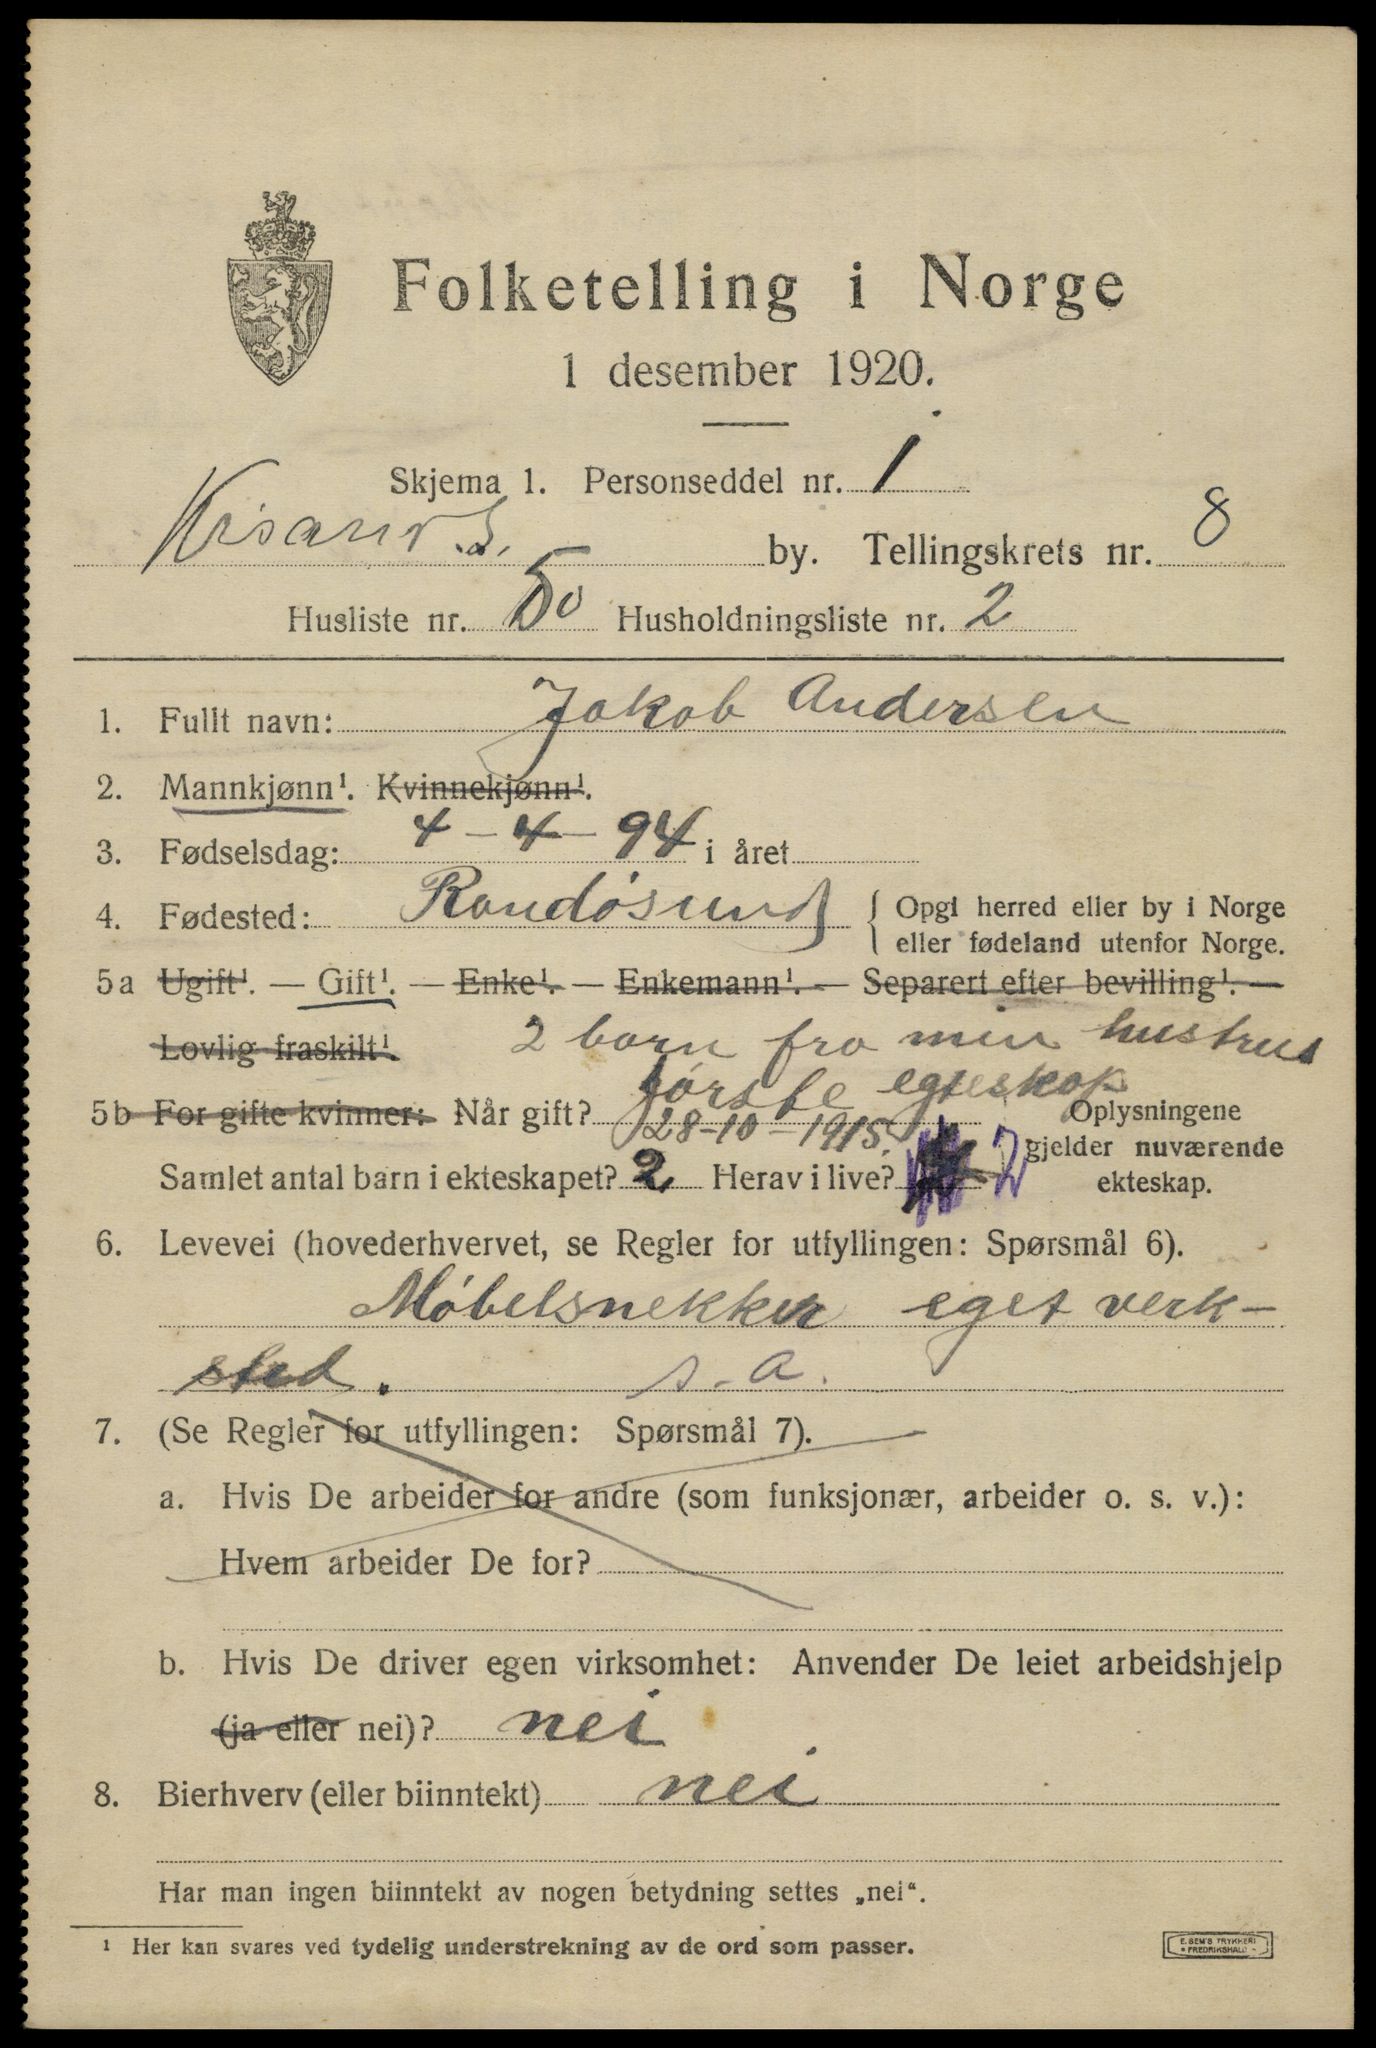 Folketelling i Norge
1 desember 1920.
Skjema 1. Personseddel nr. 1
Krisand S. by. Tellingskrets nr. 8
Husliste nr. 50 Husholdningsliste nr. 2
1. Fullt navn: Jakob Andersen
2. Mannkjønn¹. Kvinnekjønn¹.
3. Fødselsdag: 4-4-94 i året
4. Fødested: Randøsund { Opgi herred eller by i Norge
eller fødeland utenfor Norge.
5a Ugift¹. — Gift¹. — Enke¹. — Enkemann¹. — Separert efter bevilling¹. —
Lovlig fraskilt¹. 2 barn fra min hustrus
første egteskap
5b For gifte kvinner: Når gift? 28-10-1915. Oplysningene
gjelder nuværende
Samlet antal barn i ekteskapet? 2 Herav i live? 2 ekteskap.
6. Levevei (hovederhvervet, se Regler for utfyllingen: Spørsmål 6).
Møbelsnekker eget verk-
sted. s. a.
7. (Se Regler for utfyllingen: Spørsmål 7).
a. Hvis De arbeider for andre (som funksjonær, arbeider o. s. v.):
Hvem arbeider De for?
b. Hvis De driver egen virksomhet: Anvender De leiet arbeidshjelp
(ja eller nei)? nei
8. Bierhverv (eller biinntekt) nei
Har man ingen biinntekt av nogen betydning settes „nei“.
¹ Her kan svares ved tydelig understrekning av de ord som passer.
E. SEM'S TRYKKERI
• FREDRIKSHALD •